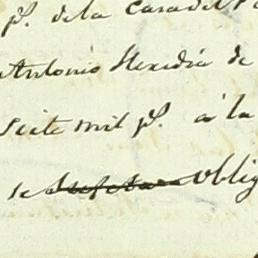 p.s de la Casa del
Antonio Heredia de
Siete mil p.s á la
se Oblig